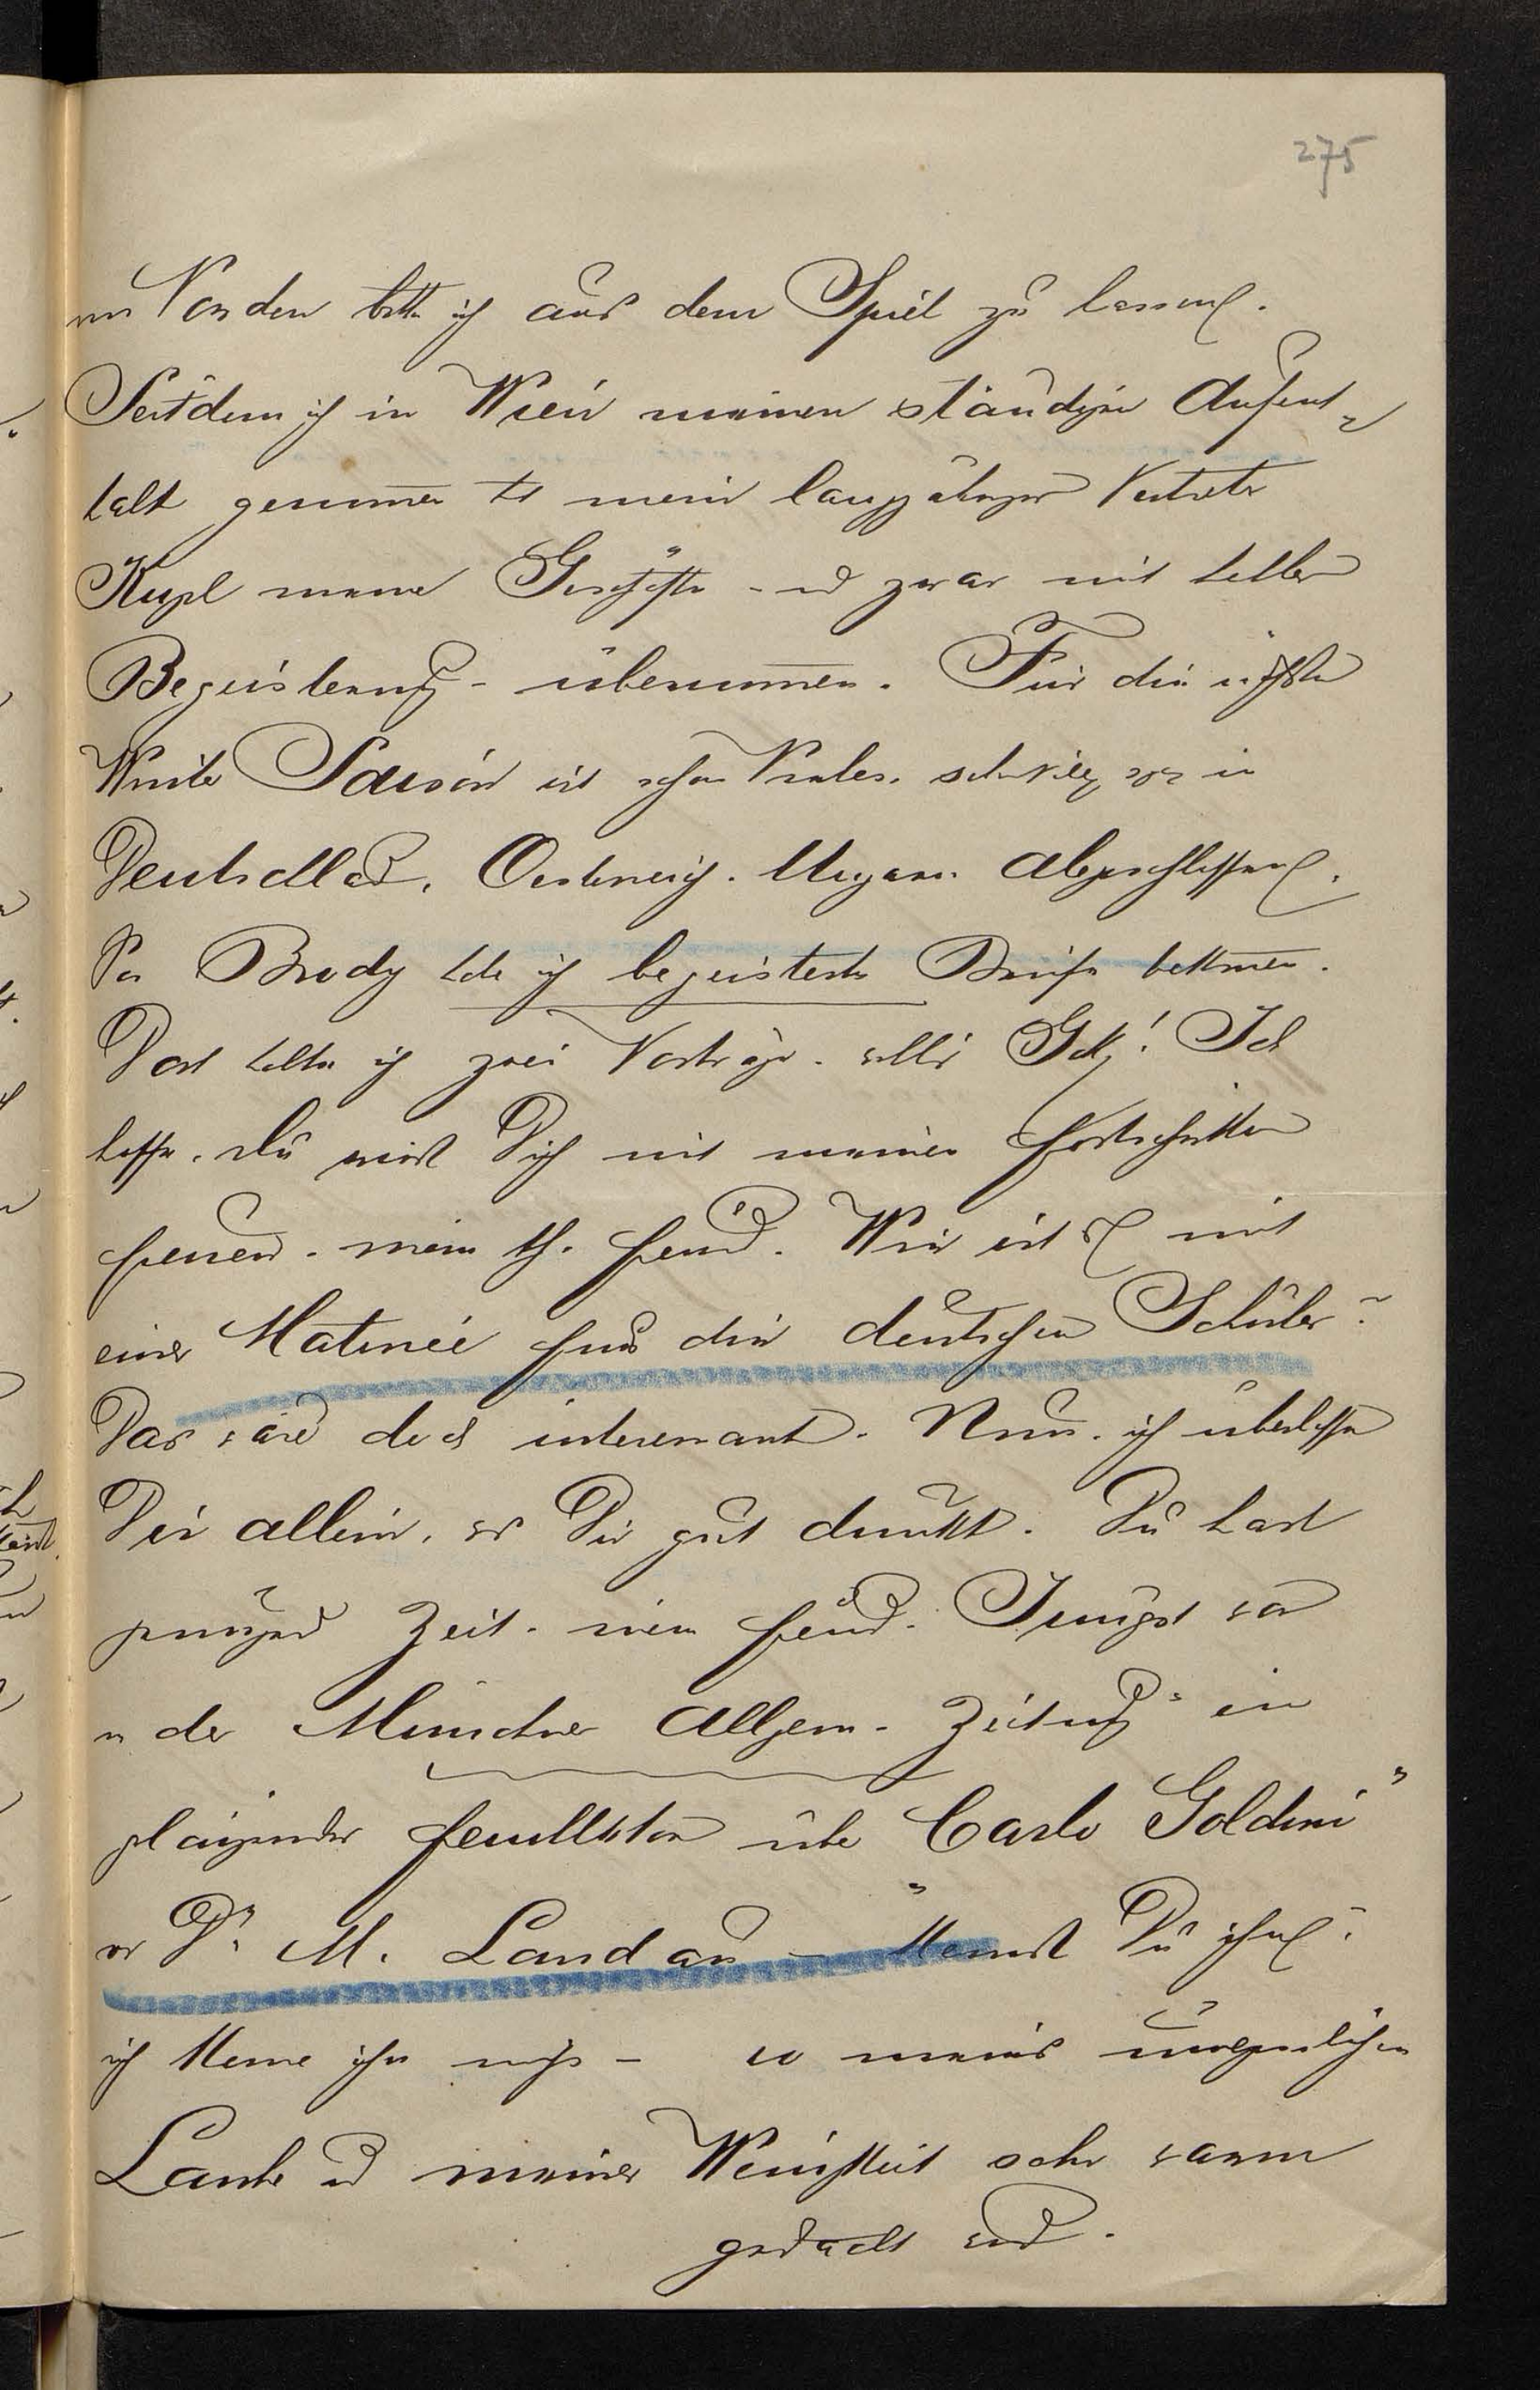 275
Norden bitte ich aus dem Spiel zu lassen.
Seitdem ich in Wien meinen ständigen Aufent-
halt genommen hat mein langjähriger Vertreter
Kugel meine Geschäfte - und zwar mit heller
Begeisterung - übernommen. Für die nächste
Winter Saison ist schon Vieles in
Deutschland, Oesterreich. Ungarn abgeschlossen.
Brody habe ich begeisterte Briefe bekommen.
Dort halte ich zwei Vorträge. Ich
hoffe, Du wirst Dich mit meinen Fortschritten
freuen. mein th. Freund. Wie ist es mit
einer Matinée für die deutschen Schüler?
Das wäre doch interessant. Nun. ich überlasse
Dir allein, was Dir gut dünkt. Du hast
genügend Zeit. mein Freund. Jüngst war
in der Münchner Allgem. Zeitung" ein
glänzender Feuilleton über "Carlo Goldoni"
von Dr. M. Landau - kennst Du ihn?
ich kenne ihn nicht - wo meines unvergesslichen
Laube und meiner Wenigkeit sehr warm
gedacht wird.